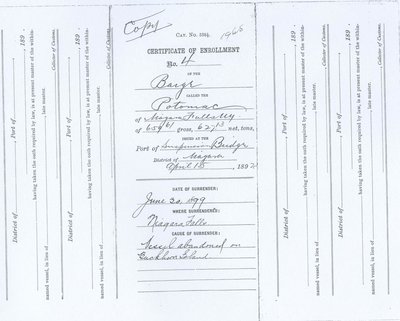 Copy
CAT. No. 526½.
1968
CERTIFICATE OF ENROLLMENT
No. 4
OF THE
Barge
CALLED THE
Potomac
of Niagara Falls NY
of 659 61 gross, 627 13 net, tons,
ISSUED AT THE
Port of Suspension Bridge
District of Niagara
April 15, 1892
DATE OF SURRENDER:
June 30, 1899
WHERE SURRENDERED:
Niagara Falls
CAUSE OF SURRENDER:
Vessel abandoned on
Buckhorn Island
District of , Port of , 189 .
having taken the oath required by law, is at present master of the within-
named vessel, in lieu of , late master.
Collector of Customs.
District of , Port of , 189 .
having taken the oath required by law, is at present master of the within-
named vessel, in lieu of , late master.
Collector of Customs.
District of , Port of , 189 .
having taken the oath required by law, is at present master of the within-
named vessel, in lieu of , late master.
Collector of Customs.
District of , Port of , 189 .
having taken the oath required by law, is at present master of the within-
named vessel, in lieu of , late master.
Collector of Customs.